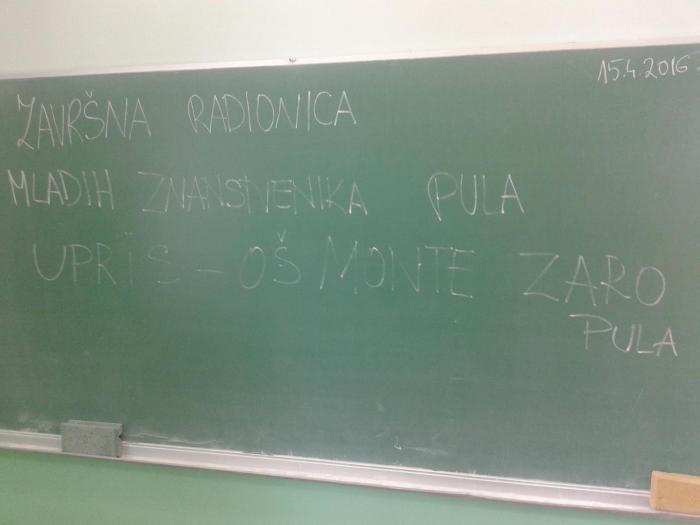 15.4.2016.
ZAVRŠNA RADIONICA
MLADIH ZNANSTVENIKA PULA
UPRIS - OŠ MONTE ZARO
PULA